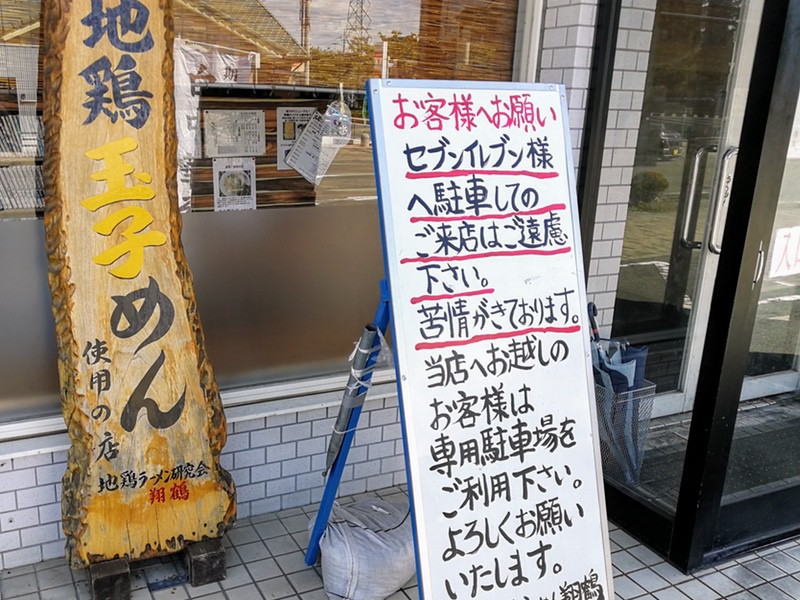 地鶏
玉子
めん
使用の店
地鶏ラーメン研究会
翔鶴
お客様へお願い
セブンイレブン様
へ駐車しての
ご来店はご遠慮
下さい。
苦情がきております。
当店へお越しの
お客様は
専用駐車場を
ご利用下さい。
よろしくお願い
いたします。
翔鶴